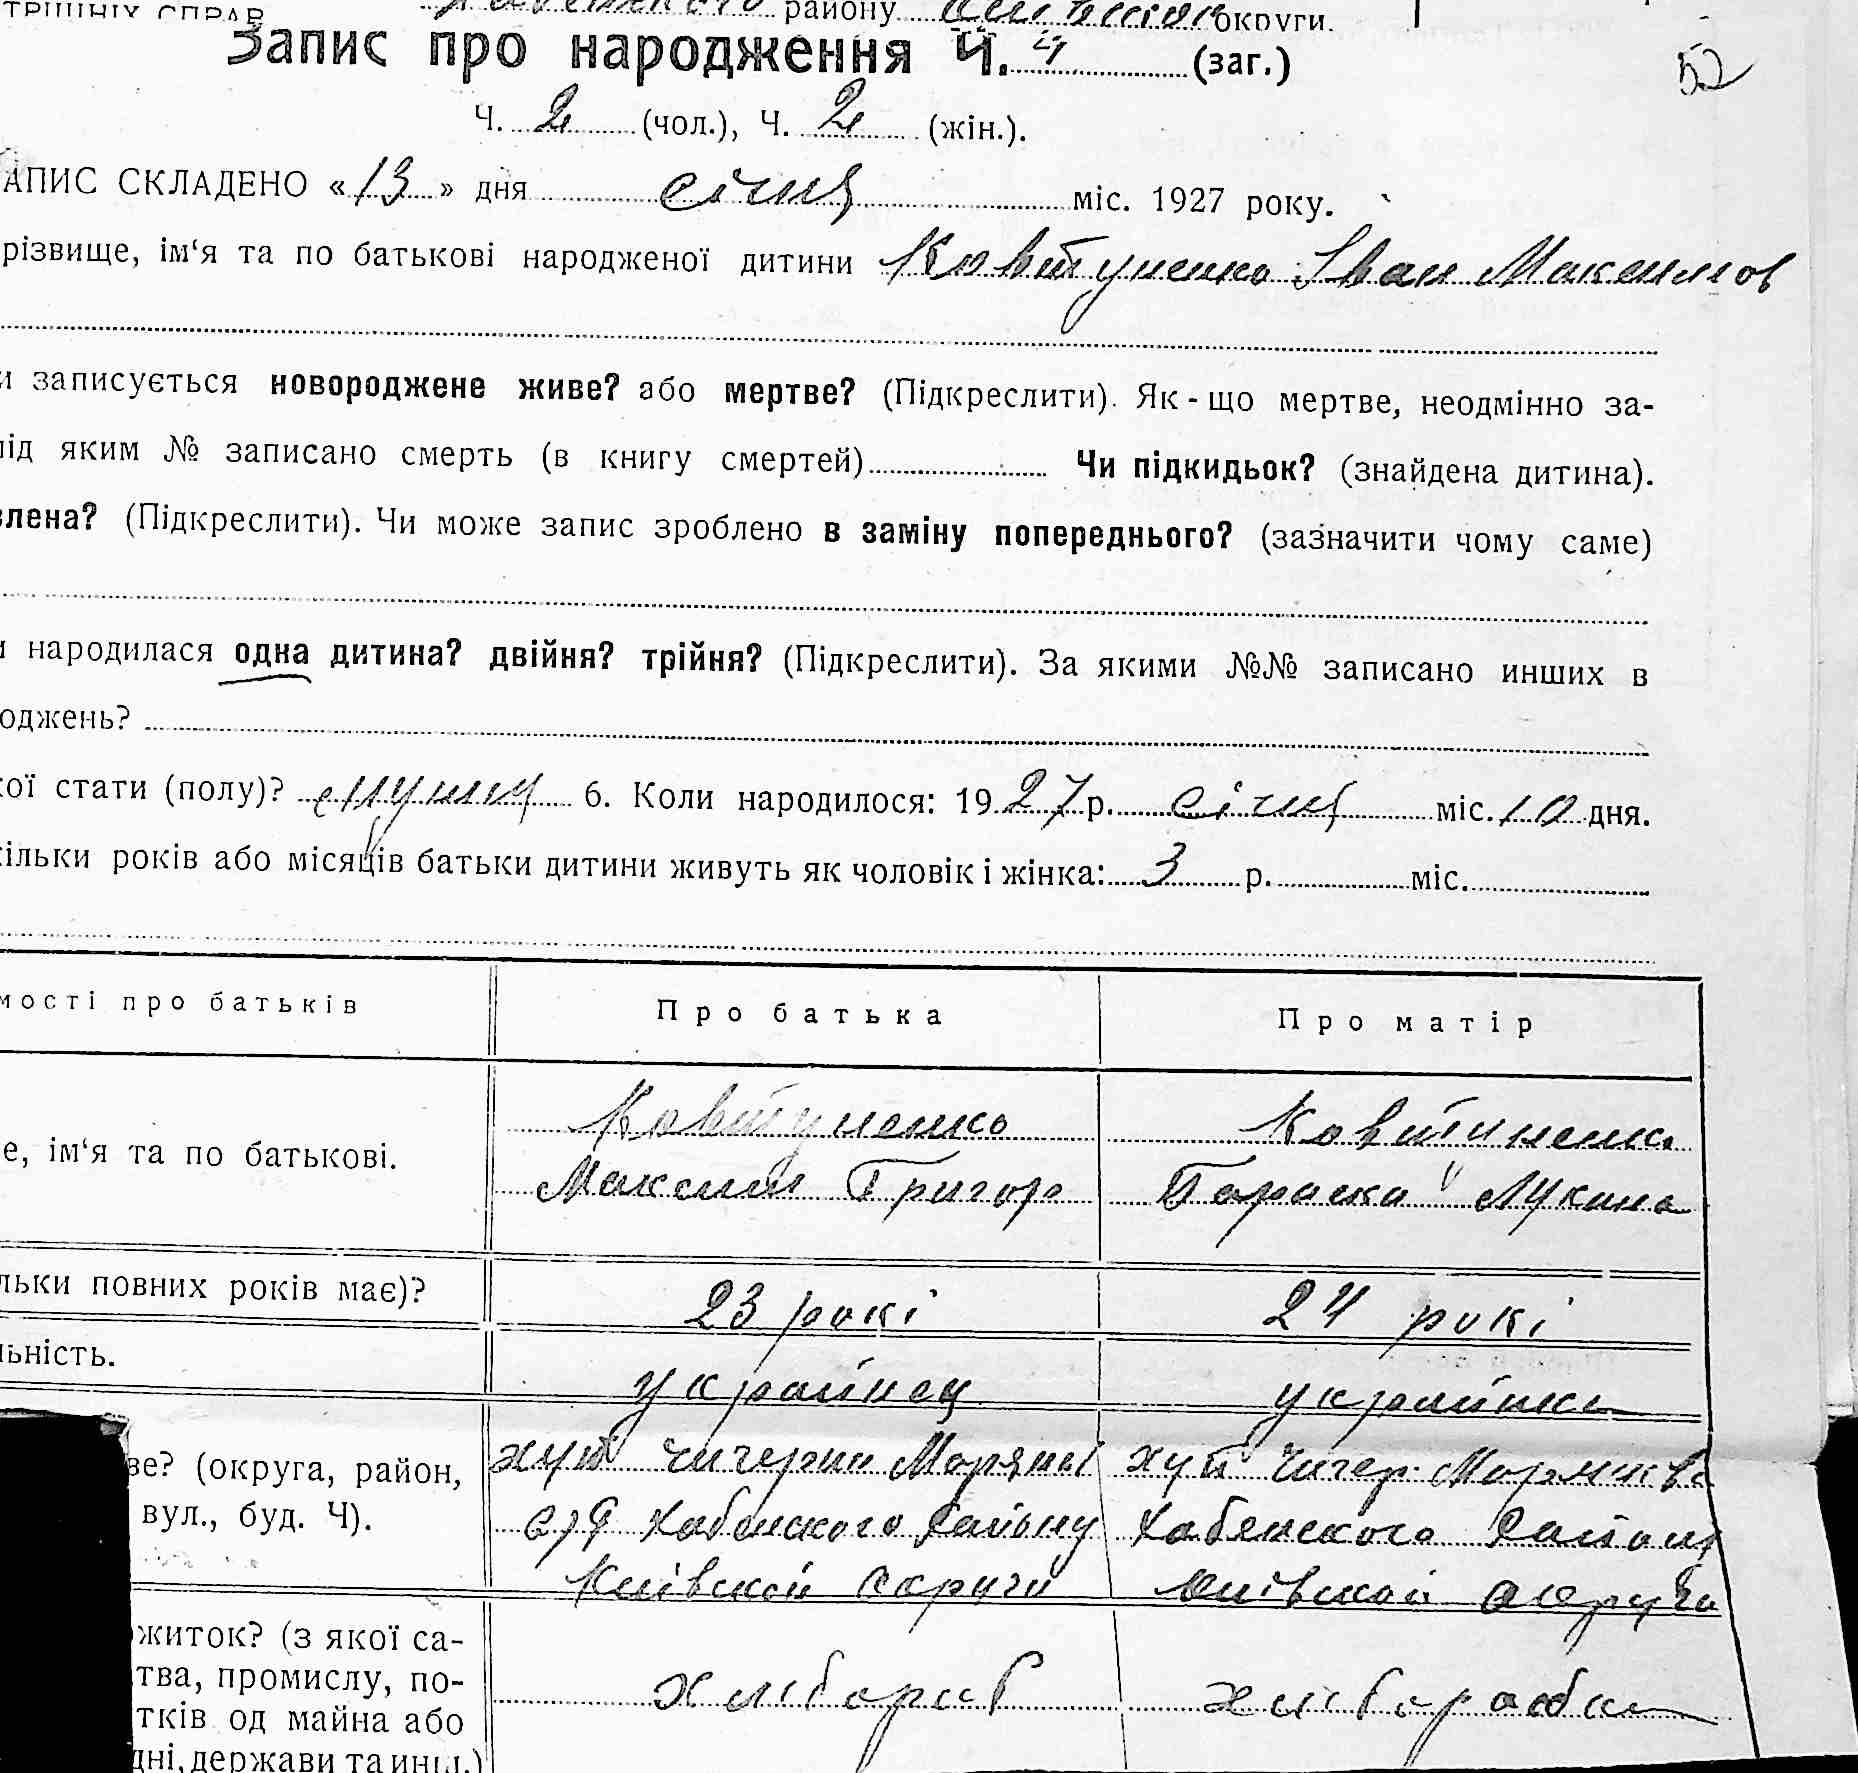 ТРІШНІХ СПРАВ району округи.
Запис про народження Ч. 4 (заг.)
52
Ч. 2 (чол.), Ч. 2 (жін.).
АПИС СКЛАДЕНО «13» дня січня міс. 1927 року.
різвище, ім‘я та по батькові народженої дитини Ковтуненко Іван Максимов
и записується новороджене живе? або мертве? (Підкреслити). Як-що мертве, неодмінно за-
під яким № записано смерть (в книгу смертей) Чи підкидьок? (знайдена дитина).
влена? (Підкреслити). Чи може запис зроблено в заміну попереднього? (зазначити чому саме)
и народилася одна дитина? двійня? трійня? (Підкреслити). За якими №№ записано инших в
оджень?
кої стати (полу)? 6. Коли народилося: 1927 р. січня міс. 10 дня.
кільки років або місяців батьки дитини живуть як чоловік і жінка: 3 р. міс.
мості про батьків Про батька Про матір
е, ім‘я та по батькові. Ковтуненко Ковтуненко
Максим Григор Параска Лукина
льки повних років має)? 23 рокі 24 рокі
льність. украйнец украйнка
ве? (округа, район, хут Чичерин хут Чичер
вул., буд. Ч). Хабенского Району Хабенского Району
Киівской Округи Киівской Округи
житок? (з якої са-
тва, промислу, по- хлібороб хлібробка
тків од майна або
дні, держави та инш.)